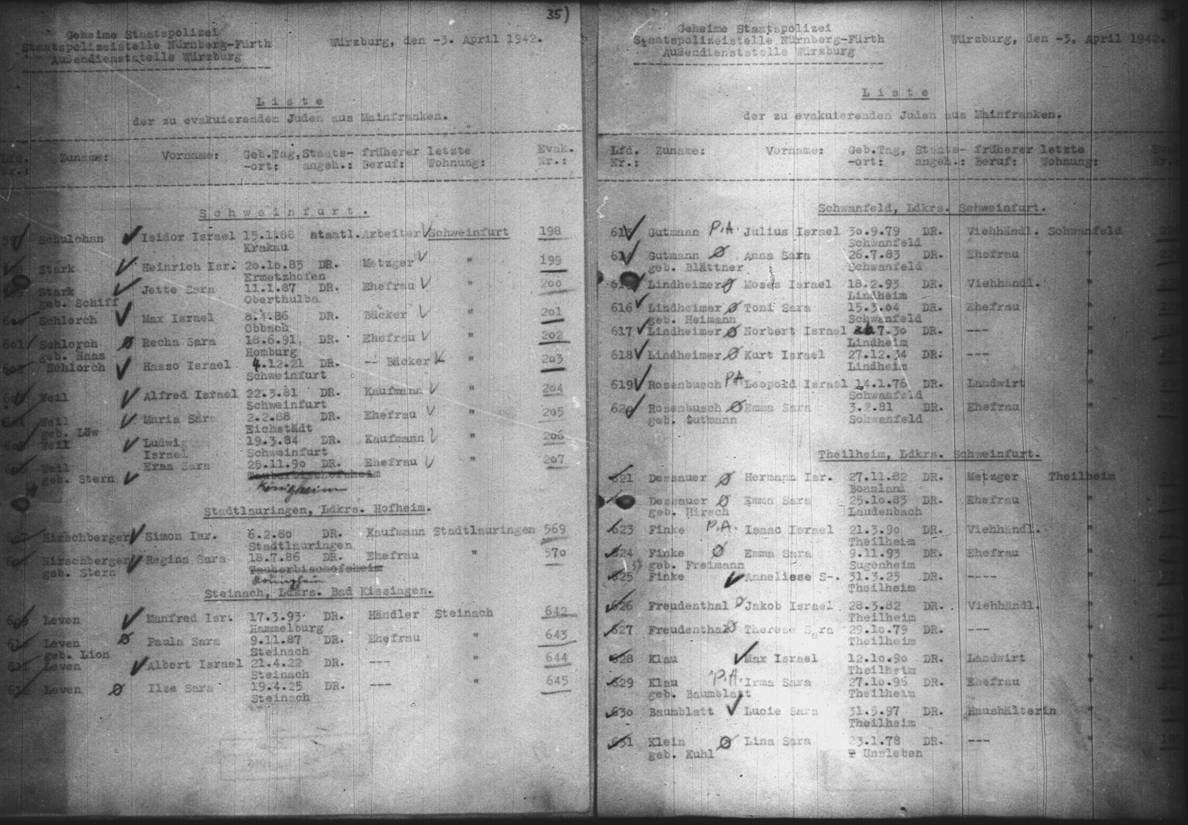 35)
Geheime Staatspolizei
Staatspolizeistelle Nürnberg-Fürth
Außendienststelle Würzburg
Würzburg, den -3. April 1942.
Liste
der zu evakuierenden Juden aus Mainfranken.
Lfd. Zuname: Vorname: Geb.Tag, Staats- früherer letzte Evak.
Nr.: -ort: angeh.: Beruf: Wohnung: Nr.:
Schweinfurt.
Isidor Israel 15.1.88 staatl. Arbeiter Schweinfurt 198
Krakau
Stark Heinrich Isr. 20.10.83 DR. Metzger " 199
Ermetzhofen
Stark Jette Sara 11.1.87 DR. Ehefrau " 200
geb. Schiff Oberthulba
Schlorch Max Israel 8.4.86 DR. Bäcker " 201
Obbach
Schlorch Recha Sara 18.6.91 DR. Ehefrau " 202
geb. Haas Homburg
Schlorch Hasso Israel 4.12.21 DR. -- Bäcker " 203
Schweinfurt
Weil Alfred Israel 22.3.81 DR. Kaufmann " 204
Schweinfurt
Weil Maria Sara 2.2.88 DR. Ehefrau " 205
geb. Löw Eichstädt
Weil Ludwig 19.3.84 DR. Kaufmann " 206
Israel Schweinfurt
Weil Erna Sara 25.11.90 DR. Ehefrau " 207
geb. Stern Tauberbischofsheim
Königheim
Stadtlauringen, Ldkrs. Hofheim.
Hirschberger Simon Isr. 6.2.80 DR. Kaufmann Stadtlauringen 569
Stadtlauringen
Hirschberger Regina Sara 18.7.86 DR. Ehefrau " 570
geb. Stern Tauberbischofsheim
Königheim
Steinach, Ldkrs. Bad Kissingen.
Leven Manfred Isr. 17.3.93 DR. Händler Steinach 642
Hammelburg
Leven Paula Sara 9.11.87 DR. Ehefrau " 643
geb. Lion Steinach
Leven Albert Israel 21.4.22 DR. --- " 644
Steinach
Leven Ilse Sara 19.4.25 DR. --- " 645
Steinach
Geheime Staatspolizei
Staatspolizeistelle Nürnberg-Fürth
Außendienststelle Würzburg
Würzburg, den -3. April 1942.
Liste
der zu evakuierenden Juden aus Mainfranken.
Lfd. Zuname: Vorname: Geb.Tag, Staats- früherer letzte Evak.
Nr.: -ort: angeh.: Beruf: Wohnung:
Schwanfeld, Ldkrs. Schweinfurt.
Gutmann P.A. Julius Israel 30.9.79 DR. Viehhändl. Schwanfeld
Schwanfeld
Gutmann Anna Sara 26.7.83 DR. Ehefrau "
geb. Blättner Schwanfeld
Lindheimer Moses Israel 18.2.93 DR. Viehhändl. "
Lindheim
616 Lindheimer Toni Sara 15.3.04 DR. Ehefrau "
geb. Heimann Schwanfeld
617 Lindheimer Norbert Israel 7.30 DR. --- "
Lindheim
618 Lindheimer Kurt Israel 27.12.34 DR. --- "
Lindheim
619 Rosenbusch P.A. Leopold Israel 14.1.76 DR. Landwirt "
Schwanfeld
620 Rosenbusch Emma Sara 3.2.81 DR. Ehefrau "
geb. Gutmann Schwanfeld
Theilheim, Ldkrs. Schweinfurt.
621 Dessauer Hermann Isr. 27.11.82 DR. Metzger Theilheim
Bonnland
Dessauer Emma Sara 25.10.83 DR. Ehefrau "
geb. Hirsch Laudenbach
623 Finke P.A. Isaac Israel 21.3.90 DR. Viehhändl. "
Theilheim
624 Finke Emma Sara 9.11.93 DR. Ehefrau "
geb. Freimann Sugenheim
625 Finke Anneliese S-. 31.3.25 DR. ---- "
Theilheim
626 Freudenthal Jakob Israel 28.3.82 DR. Viehhändl. "
Theilheim
627 Freudenthal Therese Sara 29.10.79 DR. "
Theilheim
628 Klau Max Israel 12.10.90 DR. Landwirt "
Theilheim
629 Klau P.A. Irma Sara 27.10.96 DR. Ehefrau "
geb. Baumblatt Theilheim
630 Baumblatt Lucie Sara 31.5.97 DR. Haushälterin "
Theilheim
631 Klein Lina Sara 23.1.78 DR. --- "
geb. Kuhl Unsleben